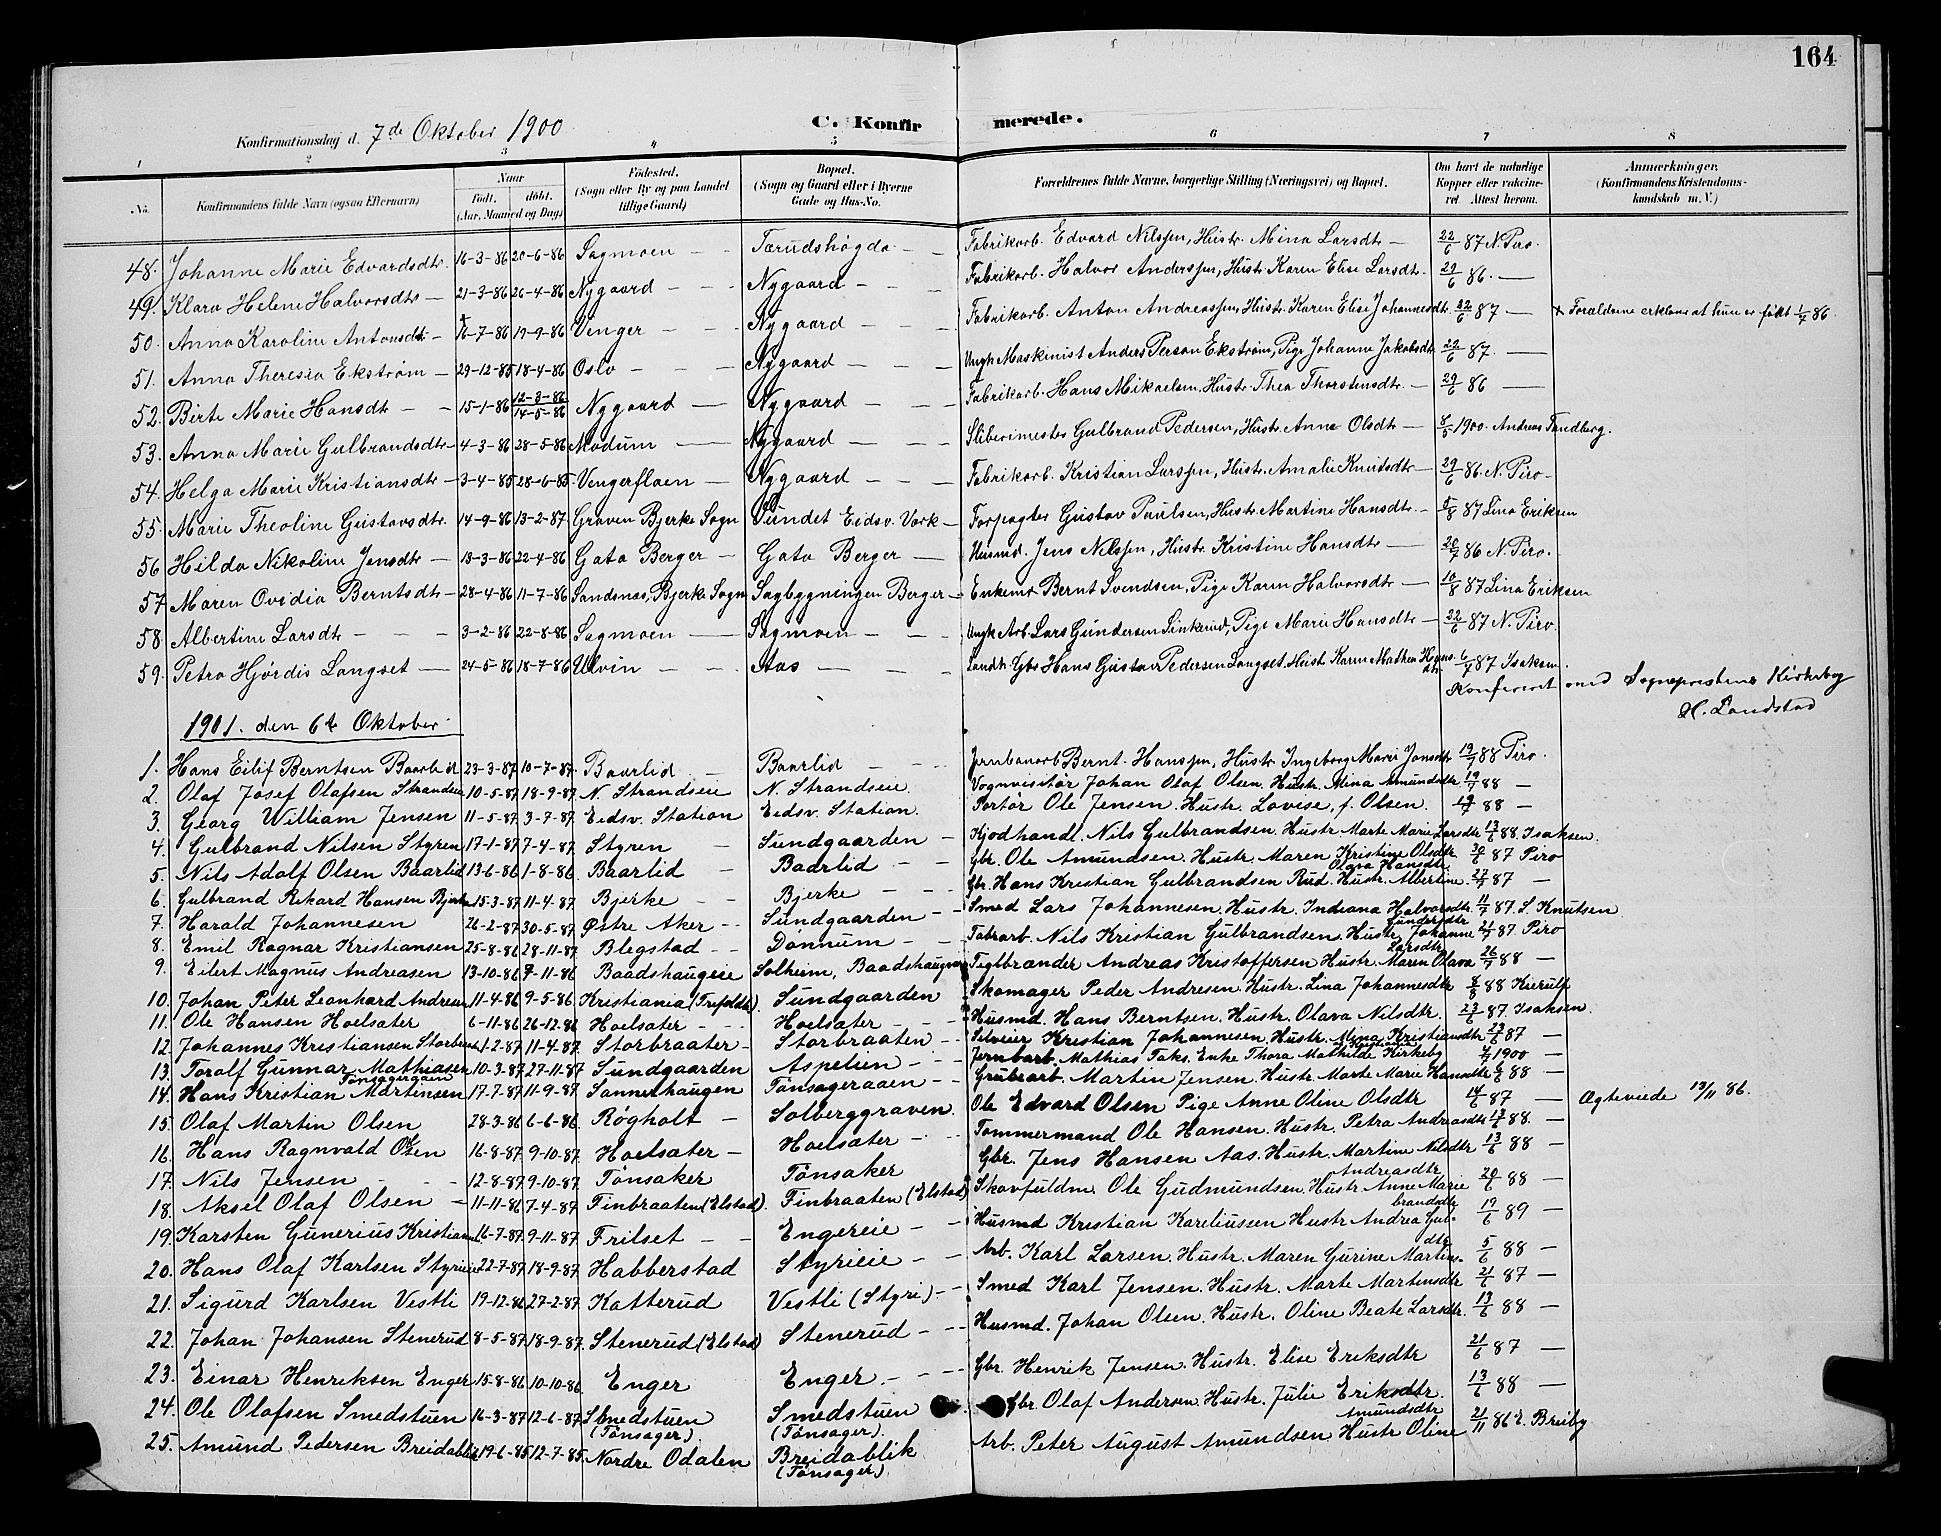 164
C. Konfirmerede.
Konfirmationsdag d. 7de Oktober 1900
1 2 3 4 5 6 7 8
No. Konfirmandens fulde Navn (ogsaa Efternavn) Naar født. døbt. (Aar, Maaned og Dag) Fødested. (Sogn eller By og paa Landet tillige Gaard) Bopæl. (Sogn og Gaard eller i Byerne Gade og Hus-No. Forældrenes fulde Navne, borgerlige Stilling (Næringsvei) og Bopæl. Om havt de naturlige Kopper eller vakcineret Attest herom. Anmærkninger. (Konfirmandens Kristendomskundskab m. V.)
48. Johanne Marie Edvardsdtr. 16-3-86 20-6-86 Sagmoen — Tærudshøgda — Fabrikarb. Edvard Nilssen, Hustr. Mina Larsdtr — 22/6 87 N. Piro.
49. Klara Helene Halvorsdtr — 21-3-86 26-4-86 Nygaard — Nygaard — Fabrikarb. Halvor Anderssen, Hustr. Karen Elise Larsdtr. 29/6 86. —
50. Anna Karoline Antonsdtr — + 16-7-86 19-9-86 Venger — Nygaard — Fabrikarb. Anton Andreassen, Hustr. Karen Elise Johannesdtr. 22/6 87 — + Forældrene erklære at hun er født 1/7 86.
51. Anna Theresia Ekstrøm — 29-12-85 18-4-86 Oslo — Nygaard — Ungk. Maskinist Anders Person Ekstrøm, Pige Johanne Jakobsdtr 22/6 87. —
52. Birte Marie Hansdtr — 15-1-86 12-3-86 14-5-86 Nygaard — Nygaard — Fabrikarb. Hans Mikaelsen. Hustr. Thea Thorstensdtr. — 29/6 86 —
53. Anna Marie Gulbrandsdtr — 4-3-86 28-5-86 Modum — Nygaard — Sliberimester Gulbrand Pedersen, Hustr. Anne Olsdtr — 1900. Andreas Tandberg.
54. Helga Marie Kristiansdtr — 3-4-85 28-6-85 Vengerfloen — Nygaard — Fabrikarb. Kristian Larssen, Hustr. Amalie Knutsdtr — 29/6 86. N. Piro —
55. Marie Theoline Gustavsdtr. 14-9-86 13-2-87 Graven Bjerke Sogn Sundet Eidsv. Værk — Forpagter Gustav Paulsen, Hustr. Martine Hansdtr. — 5/8 87 Lina Eriksen
56. Hilda Nikoline Jensdtr — 13-3-86 22-4-86 Gata Berger — Gata Berger — Husmd. Jens Nilssen, Hustr. Kristine Hansdtr — 20/7 86 N. Piro.
57. Maren Ovidia Berntsdtr — 28-4-86 11-7-86 Sandsnas, Bjerke Sogn Sagbygningen Berger — Enkemd Bernt Svendsen, Pige Karen Halvorsdtr — 10/8 87 Lina Eriksen
58. Albertine Larsdtr — 3-2-86 22-8-86 Sagmoen — Sagmoen — Ungk. Arb. Lars Gundersen Sinkerud, Pige Marie Hansdtr — 22/6 87 N. Piro.
59. Petra Hjørdis Langset — 24-5-86 18-7-86 Ulvin — Aas — Landh. Gbr. Hans Gustav Pedersen Langset. Hustr. Karen Mathea Hansdtr. 6/7 87 Isaksen.
Konfereret med Sognepræstens Kirkebog
H. Landstad
1901. den 6te Oktober.
1. Hans Eilif Berntsen Baarlid 23-3-87 10-7-87. Baarlid — Baarlid — Jernbanearb Bernt Hanssen, Hustr. Ingeborg Marie Jonsdtr 19/7 88 Piro.
2. Olaf Josef Olafsen Strandseie 10-5-87 18-9-87 N. Strandseie N. Strandseie. Vognvisitør Johan Olaf Olsen, Hustr. Mina Amundsdtr 19/7 88 —
3. Georg William Jensen 11-5-87 3-7-87. Eidsv. Station Eidsv. Station. Portør Ole Jensen. Hustr. Lovise, f. Olsen. 19/7 88 —
4. Gulbrand Nilsen Styren 17-1-87 7-4-87. Styren — Sundgaarden — Kjødhandl. Nils Gulbrandsen. Hustr. Marte Marie Larsdtr 13/6 88 Isaksen.
5. Nils Adolf Olsen Baarlid 13-6-86 1-8-86. Baarlid — Baarlid — Gbr. Ole Amundsen. Hustr. Maren Kristine Olsdtr 30/6 87 Piro
6. Gulbrand Rikard Hansen Bjerke 15-3-87 11-4-87. Bjerke — Bjerke — Gbr. Hans Kristian Gulbrandsen Rud. Hustr. Albertine Olava Hansdtr. 27/7 87 —
7. Harald Johannesen 26-2-87 30-5-87 Østre Aker — Sundgaarden — Smed Lars Johannesen. Hustr. Indiana Halvorsdtr 11/7 87. S. Knutsen
8. Emil Ragnar Kristiansen 25-8-86 28-11-87. Blegstad — Dønnum — Fabrarb. Nils Kristian Gulbrandsen. Hustr. Johanne Gundersdtr 87. Piro
9. Eilert Magnus Andreasen 13-10-86 7-11-86 Baadshaugeie Solheim, Baadshaugen Teglbrænder Andreas Kristoffersen Hustr. Maren Olava Larsdtr 26/7 88 —
10. Johan Peter Leonhard Andresen 11-4-86 9-5-86 Kristiania (Trefoldh.). Sundgaarden Skomager Peder Andresen. Hustr. Lina Johannesdtr 8/8 88 Kierulf
11. Ole Hansen Hoelsæter 6-11-86 26-12-86 Hoelsæter — Hoelsæter — Husmd. Hans Berntsen. Hustr. Olava Nilsdtr. 23/6 87. Isaksen.
12. Johannes Kristiansen Storbraaten 1-2-87 11-4-87. Storbraaten — Storbraaten — Selveier Kristian Johannesen. Hustr. Mina Kristiansdtr 23/6 87 —
13. Toralf Gunnar Mathiasen 10-3-87 27-11-87 Sundgaarden Aspelien — Jernbarb. Mathias Taks. Enke Thora Mathilde Kirkeby 1900 —
14. Hans Kristian Mortensen Tønsagergaen 17-7-87 11-9-87. Sonnerhaugen Tønsageraaen — Grubearb. Martin Jensen. Hustr. Marte Marie Hansdtr 88 —
15. Olaf Martin Olsen 28-3-86 6-6-86. Røgholt — Solberggraven. Ole Edvard Olsen Pige Anne Oline Olsdtr 14/6 87 — Ægteviede 13/11 86.
16. Hans Ragnvald Olsen 16-8-87 9-10-87. Hoelsæter — Hoelsæter — Tømmermand Ole Hansen. Hustr. Petra Andreasdtr 13/6 88. —
17. Nils Jensen — 12-8-87 9-10-87. Tønsaker Tønsaker Gbr. Jens Hansen Aas. Hustr. Martine Nilsdtr 13/6 88 —
18. Aksel Olaf Olsen — 11-11-86 7-4-87. Finbraaten (Elstad). Finbraaten (Elstad) Skovfuldm. Ole Gudmundsen. Hustr. Anne Marie Andreasdtr 20/6 88 —
19. Karsten Gunerius Kristiansen 16-7-87 9-11-87. Frilset — Engereie — Husmd Kristian Kareliussen Hustr. Andrea Gulbrandsdtr 19/6 89 —
20. Hans Olaf Karlsen Styrieie 22-7-87 18-9-87. Habberstad Styrieie — Arb. Karl Larsen. Hustr. Maren Gurine Martinsdtr 5/6 88 —
21. Sigurd Karlsen Vestli 19-12-86 27-2-87. Katterud Vestli (Styri) — Smed Karl Jensen. Hustr. Marte Martensdtr 21/6 87 —
22. Johan Johansen Stenerud 8-5-87 18-9-87. Stenerud (Elstad) Stenerud — Husmd. Johan Olsen. Hustr. Oline Beate Larsdtr. 13/6 88 —
23. Einar Henriksen Enger 15-8-86 10-10-86 Enger Enger. — Gbr. Henrik Jensen. Hustr. Elise Eriksdtr 21/6 87 —
24. Ole Olafsen Smedstuen 16-3-87 12-6-87 Smedstuen (Tønsager). Smedstuen (Tønsager). Gbr. Olaf Andersen. Hustr. Julie Eriksdtr. 13/6 88 —
25. Amund Pedersen Breidablik 19-6-85 12-7-85. Nordre Odalen Breidablik (Tønsager) Arb. Peter August Amundsen Hustr Oline Amundsdtr 21/11 86 E. Breiby